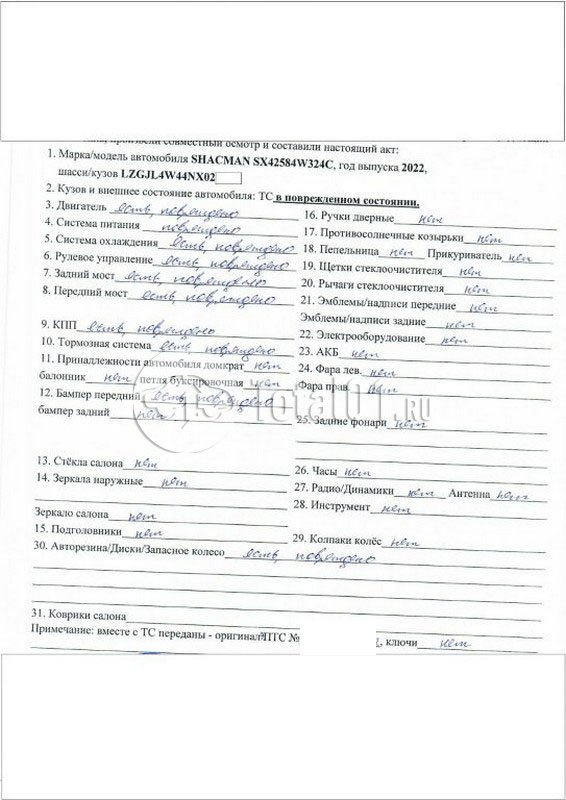 произвели совместный осмотр и составили настоящий акт:
1. Марка/модель автомобиля SHACMAN SX42584W324C, год выпуска 2022,
шасси/кузов LZGJL4W44NX02
2. Кузов и внешнее состояние автомобиля: ТС в поврежденном состоянии.
3. Двигатель есть, повреждено
4. Система питания повреждено
5. Система охлаждения есть, повреждено
6. Рулевое управление есть, повреждено
7. Задний мост есть, повреждено
8. Передний мост есть, повреждено
9. КПП есть, повреждено
10. Тормозная система есть, повреждено
11. Принадлежности автомобиля домкрат нет
балонник нет петля буксировочная нет
12. Бампер передний есть, повреждено
бампер задний нет
13. Стёкла салона нет
14. Зеркала наружные нет
Зеркало салона нет
15. Подголовники нет
16. Ручки дверные нет
17. Противосолнечные козырьки нет
18. Пепельница нет Прикуриватель нет
19. Щетки стеклоочистителя нет
20. Рычаги стеклоочистителя нет
21. Эмблемы/надписи передние нет
Эмблемы/надписи задние нет
22. Электрооборудование нет
23. АКБ нет
24. Фара лев. нет
Фара прав. нет
25. Задние фонари нет
26. Часы нет
27. Радио/Динамики нет Антенна нет
28. Инструмент нет
29. Колпаки колёс нет
30. Авторезина/Диски/Запасное колесо есть, повреждено
31. Коврики салона
Примечание: вместе с ТС переданы - оригинал ПТС № , ключи нет
Total01.RU